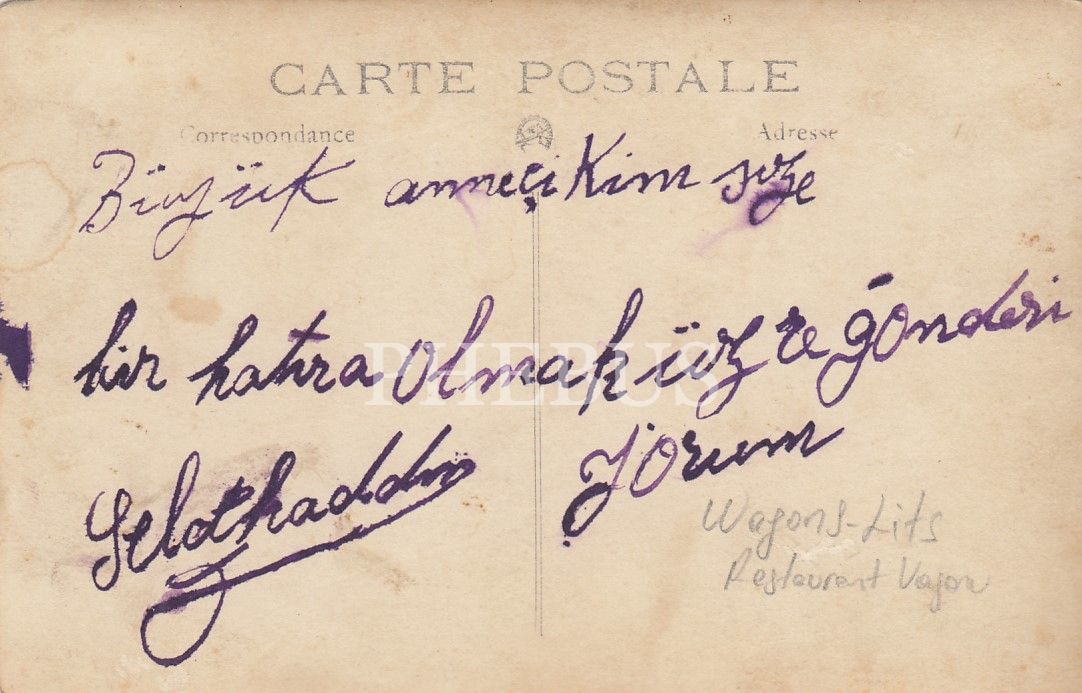 CARTE POSTALE
Correspondance Adresse
Büyük anneçikim size
bir hatıra olmak üzre gönderi
yorum
PHEBUS
Wagons-Lits
Restaurant Vagon